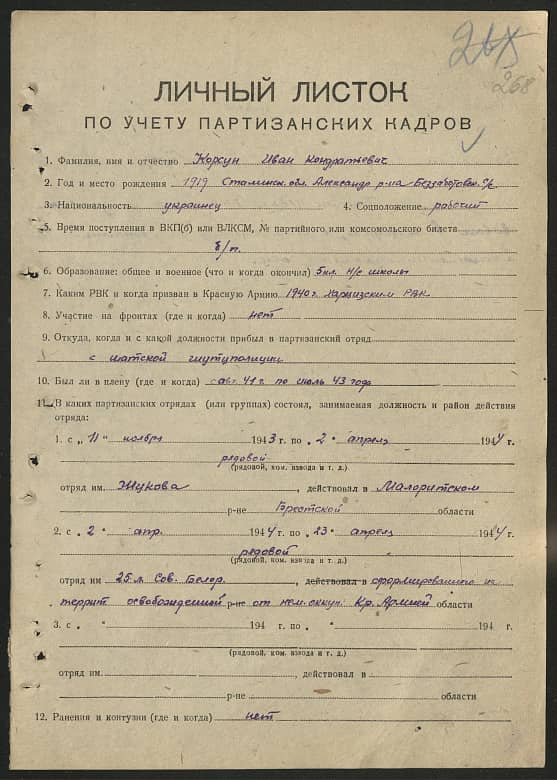 268
ЛИЧНЫЙ ЛИСТОК
ПО УЧЕТУ ПАРТИЗАНСКИХ КАДРОВ
1. Фамилия, имя и отчество Корсун Иван Кондратьевич
2. Год и место рождения 1919 Сталинск. обл. Александро р-на Беззаботовск. с/с
3. Национальность украинец 4. Соцположение рабочий
5. Время поступления в ВКП(б) или ВЛКСМ, № партийного или комсомольского билета
б/п.
6. Образование: общее и военное (что и когда окончил) 5 кл. н/с школы
7. Каким РВК и когда призван в Красную Армию 1940 г. Харцизским РВК
8. Участие на фронтах (где и когда) нет
9. Откуда, когда и с какой должности прибыл в партизанский отряд
с шатской шутцполиции
10. Был ли в плену (где и когда) с авг. 41 г. по июль 43 года
11. В каких партизанских отрядах (или группах) состоял, занимаемая должность и район действия
отряда:
1. с „11" ноября 1943 г. по „2" апреля 1944 г.
рядовой
(рядовой, ком. взвода и т. д.)
отряд им. Жукова, действовал в Малоритском
р-не Брестской области
2. с „2" апр. 1944 г. по „23" апреля 1944 г.
рядовой
(рядовой, ком. взвода и т. д.)
отряд им 25 л. Сов. Белор., действовал в сформированного на
террит освобожденной р-не от нем. оккуп. Кр. Армией области
3. с „ " 194 г. по „ " 194 г.
(рядовой, ком. взвода и т. д.)
отряд им., действовал в
р-не области
12. Ранения и контузии (где и когда) нет